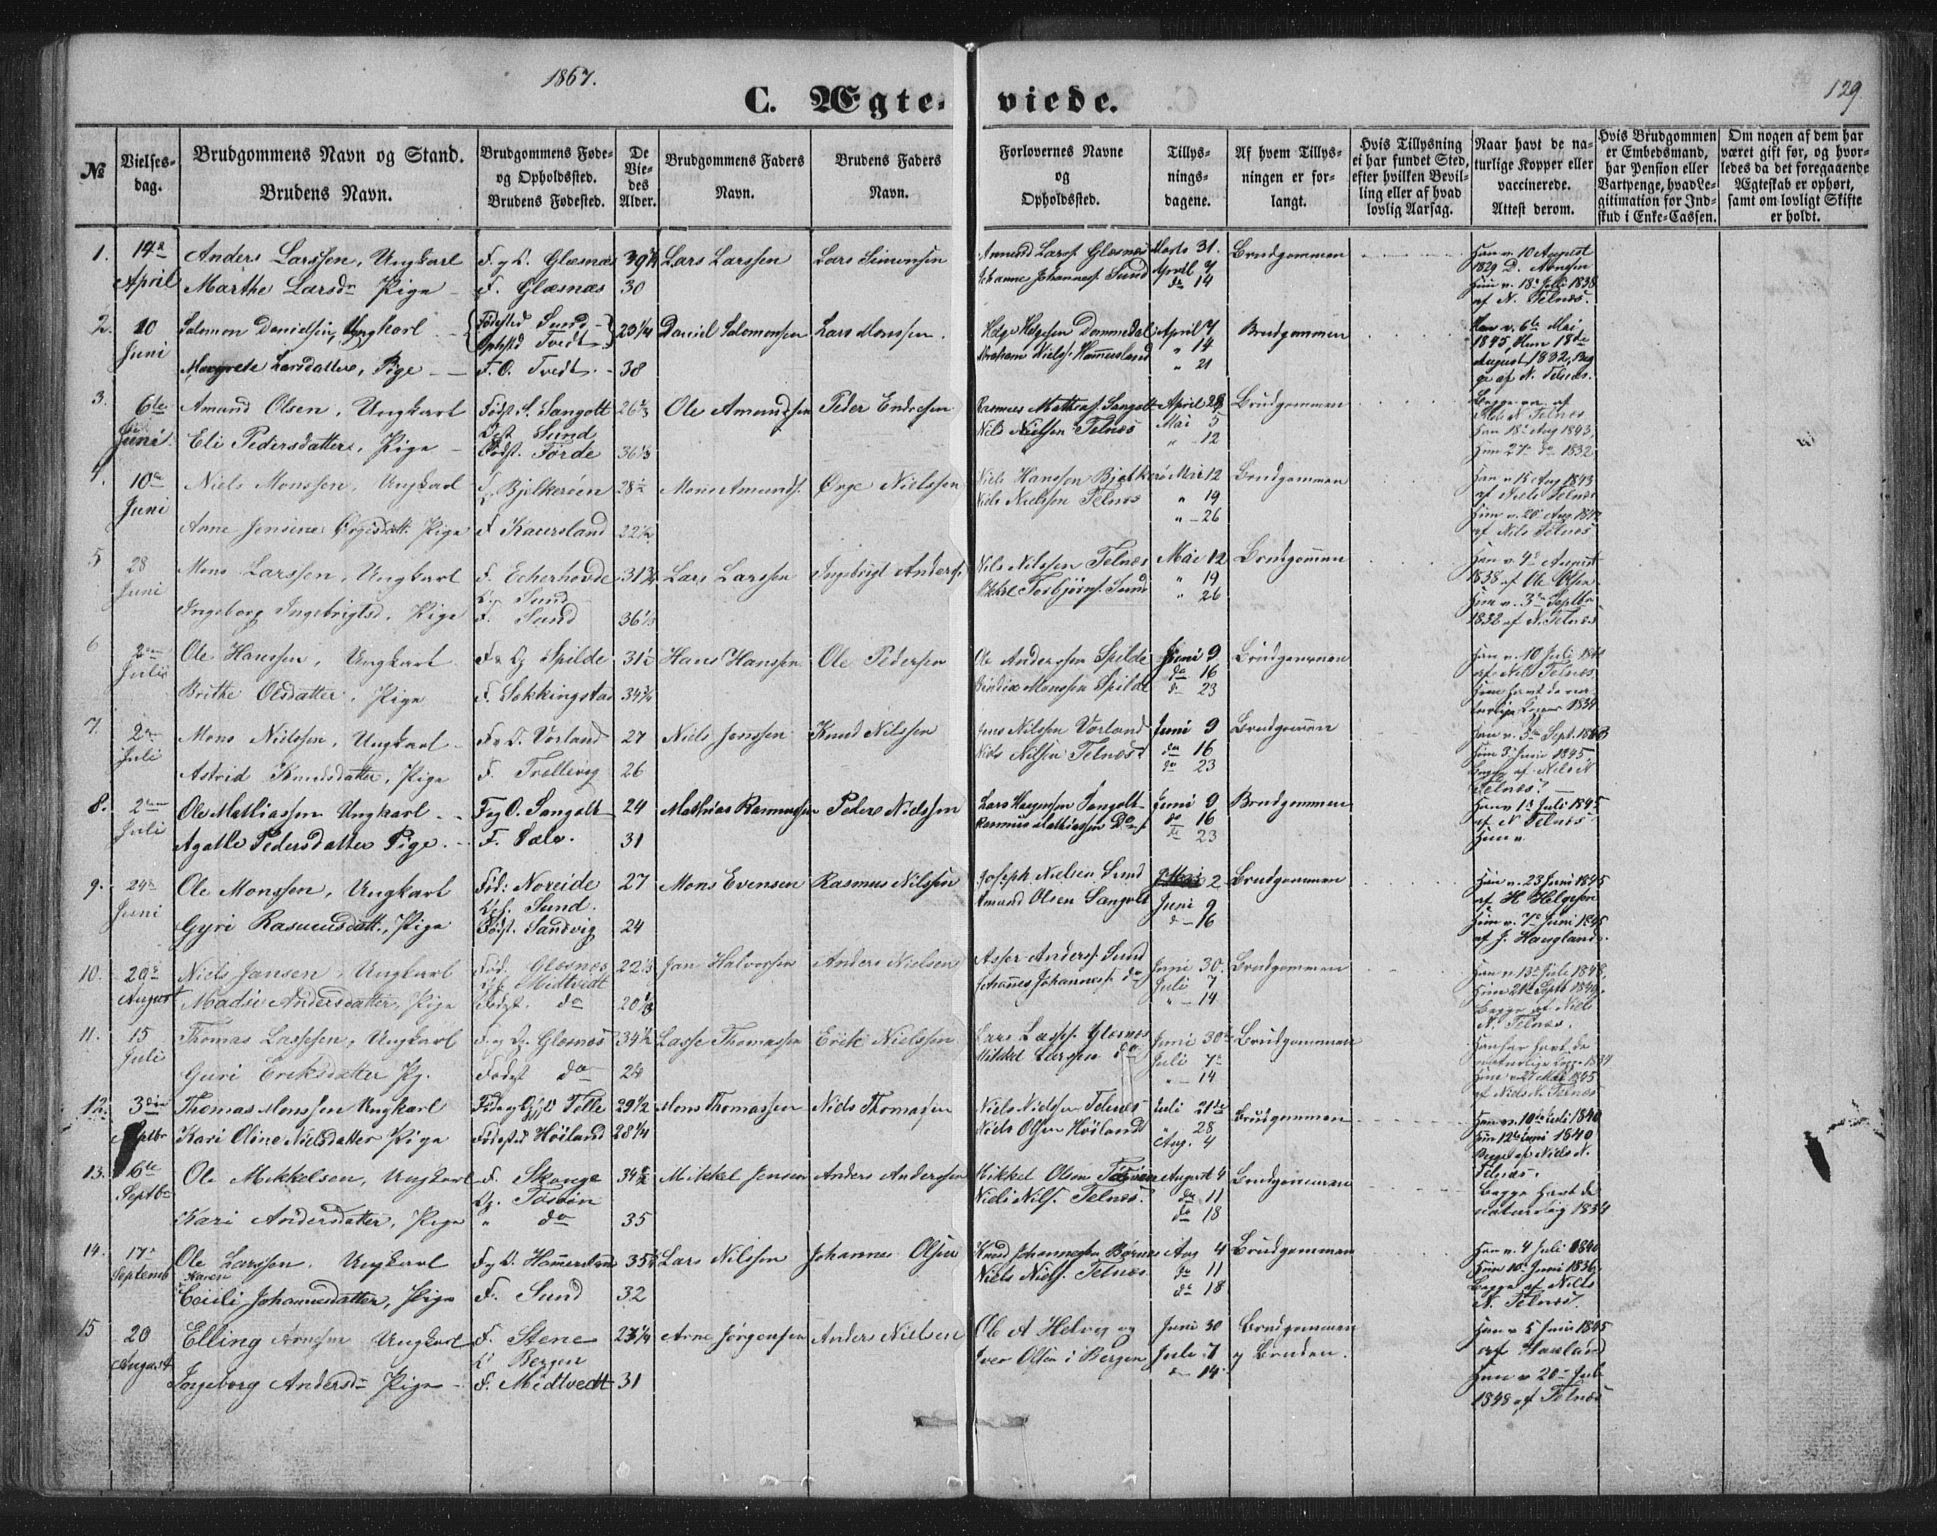 1867.
129
C. Ægte- viede.
№
Vielses-
dag.
Brudgommens Navn og Stand.
Brudens Navn.
Brudgommens Føde-
og Opholdssted.
Brudens Fødested.
De
Vie-
des
Alder.
Brudgommens Faders
Navn.
Brudens Faders
Navn.
Forlovernes Navne
og
Opholdssted.
Tillys-
nings-
dagene.
Af hvem Tillys-
ningen er for-
langt.
Hvis Tillysning
ei har fundet Sted,
efter hvilken Bevil-
ling eller af hvad
lovlig Aarsag.
Naar havt de na-
turlige Kopper eller
vaccinerede.
Attest derom.
Hvis Brudgommen
er Embedsmand,
har Pension eller
Vartpenge, hvad Le-
gitimation for Ind-
skud i Enke-Cassen.
Om nogen af dem har
været gift før, og hvor-
ledes da det foregaaende
Ægteskab er ophørt,
samt om lovligt Skifte
er holdt.
1. 14de April
Anders Larssen, Ungkarl
Marthe Larsdr Pige
F. y O. Glæsnæs
F. Glæsnæs
30
Lars Larssen
Lars Simonsen
Amund Larss. Glæsnæs
Johanne Johanness. Sund
Marts 31.
April 7
do 14
Brudgommen
Han v. 10 August
1829 D. Monsen
Hun v. 18 Juli 1838
af N. Telnæs.
2. 10 Juni
Salomon Danielsen, Ungkarl
Margrete Larsdatter, Pige
Fødested Sund
Ophsted Tvedt
F. O. Tvedt
23 1/4
38
Daniel Salomonsen
Lars Monssen.
Helge Helgesen Dommedal
Abraham Niels. Hamersland
April 7
" 14
" 21
Brudgommen
Han v. 6te Mai
1845, Hun 18de
August 1832, Beg
ge af N. Telnæs.
3. 6te Juni.
Amund Olsen, Ungkarl
Eli Pedersdatter, Pige
Fødst. S. Sangolt
Opst Sund
Fødst. Førde
26 2/3
36 1/3
Ole Amundsen
Peder Endresen
Rasmus Mathias. Sangolt
Nils Nielsen Telnæs
April 28
Mai 5
" 12
Brudgommen
Begge va. af
Niels N. Telnæs
Han 18 Aug 1843,
Hun 27de do 1832
4. 10de Juni
Niels Monssen, Ungkarl
Anne Jensine Ørgesdatt. Pige
Bjelkerøen
F Kaursland
28 1/2
22 1/2
Mons Amunds.
Ørge Nielssen
Niels Hanssen Bjelkerø
Niels Nielsen Telnæs
Mai 12
" 19
" 26
Brudgommen
Han v 15 Aug 1843
af Niels Telnæs
Hun v. 20 Aug. 1842
af Nils Telnæs
5 28 Juni
Mons Larssen, Ungkarl
Ingeborg Ingebrigtsd., Pige
F. Eckerhovde
Og Sund
F. Sund
31 3/4
36 1/3
Lars Larssen
Ingebrigt Anders.
Nels Nilssen Telnæs
Mikkel Torbjørns. Sund
Mai 12
" 19
" 26
Brudgommen
Han v. 4de August
1838 af Ole Olsen
Hun v. 3de Septbr
1832 af N. Telnæs
6 2den Juli
Ole Hanssen, Ungkarl
Brithe Olsdatter, Pige
F. Og Spilde
F. Tokkingstad
31 1/2
34 3/4
Hans Hanssen
Ole Pedersen
Ole Anderssen Spilde
Monssen Spilde
Juni 9
do 16
do 23
Brudgommen
Han v. 10 Juli 1841
af Niels Telnæs.
Hun havt de na-
turlige Kopper 1834
7. 2de Juli
Mons Nielssen, Ungkarl
Astrid Knudsdatter, Pige
F. O. Vorland
F. Trellevig
27
26
Niels Jenssen
Knud Nilssen
Jens Nilssen Vorland
Niels Nilsen Telnæs
Juni 9
do 16
do 23
Brudgommen
Hun 3 Juni 1845
Begge af Niels N
Telnæs.
8. 2den Juli
Ole Mathiassen Ungkarl
Agathe Pedersdatter Pige.
F. og O. Sangolt
24
31
Mathias Rasmussen
Peder Nielssen
Lars Hagensen Sangolt
Rasmus Mathiassen Do
Juni 9
do 16
" 23
Brudgommen
Han v 13 Juli 1845
af N Telnæs
Hun v.
9. 24de Juni
Ole Monssen, Ungkarl
Gyri Rasmusdatt., Pige
Fød: Noreide
Oph. Sund.
Fødst. Sandvig
27
24
Mons Evensen
Rasmus Nilssen
Joseph Nielsen Sund
Amund Olsen Sangolt
2
Juni 9
do 16
Brudgommen
Han v. 23 Juni 1845
af H Helgesen
Hun v. 7de Juni 1845
af J. Haugland.
10. 29de August
Niels Jansen, Ungkarl
Madli Andersdatter, Pige
Fød. Glæsnæs
Midtvedt
Fødst. do
22 1/3
20 1/3
Jan Halvorsen
Anders Nielsen
Asser Anders. Sund
Johannes Johanness. do
Juni 30.
Juli 7
" 14
Brudgommen
Han v. 13de Juli 1848,
Hun 21de Septb 1849,
Begge af Niels
N. Telnæs.
11. 15 Juli
Thomas Lassesen, Ungkarl
Guri Eriksdatter Pg.
F. og Og. Glæsnæs
Fødest do
34 1/2
24
Lasse Thomassen
Erik Nielssen
Lars Lass. Glæsnæs
Mikkel Larssen do
Juni 30te
Juli 7de
" 14
Brudgommen
Han har havt de
naturlige Kopp. 1834
Hun v. 27 Mai 1845
af Niels N. Telnæs
12. 3die Septbr
Thomas Monssen Ungkarl
Kari Oline Nielsdatter Pige
Fødested Høiland
29 1/2
28 1/4
Mons Thomassen
Niels Thomasen
Niels Nielsen Telnæs
Niels Olsen Høiland
Juli 21de
" 28
Aug. 4
Brudgommen
Han v. 10de Juli 1840
Hun 12te Juni 1840
Begge af Niels N.
Telnæs.
13. 6te Septbr
Ole Mikkelsen, Ungkarl
Kari Andersdatter, Pige
F. Skoge
Og. Tøsøen
" do
35
Mikkel Jensen
Anders Anderssen
Mikkel Olsen Tøsøen
Niels Nils. Telnæs.
August 4
do 11
do 18
Brudgommen
Begge havt de
naturlig 1834
14. 17de Septemb
Ole Larssen, Ungkarl
Karen
Cecili Johannesdatter, Pige
F. y O. Hamersland
F. Sund
32
Lars Nilssen
Johannes Olsen
Knud Johannessen Børnes
Niels Niels. Telnæs
Aug 4
do 11
do 18
Brudgommen
Han v. 4 Juli 1840
Hun 10de Juni 1836
Begge af Niels
N. Telnæs.
15 20 August
Elling Arnesen Ungkarl
Ingeborg Andersdr Pige
F. Stene
O Bergen
F. Midtvedt
31
Arne Jørgensen
Anders Nielsen
Ole A Helvig og
Iver Olsen i Bergen
Juni 30
Juli 7
do 14
Brudgommen
y Bruden.
Han v 5 Juni 1845
af Haaland
Hun v 20de Juli
1848 af Telnæs